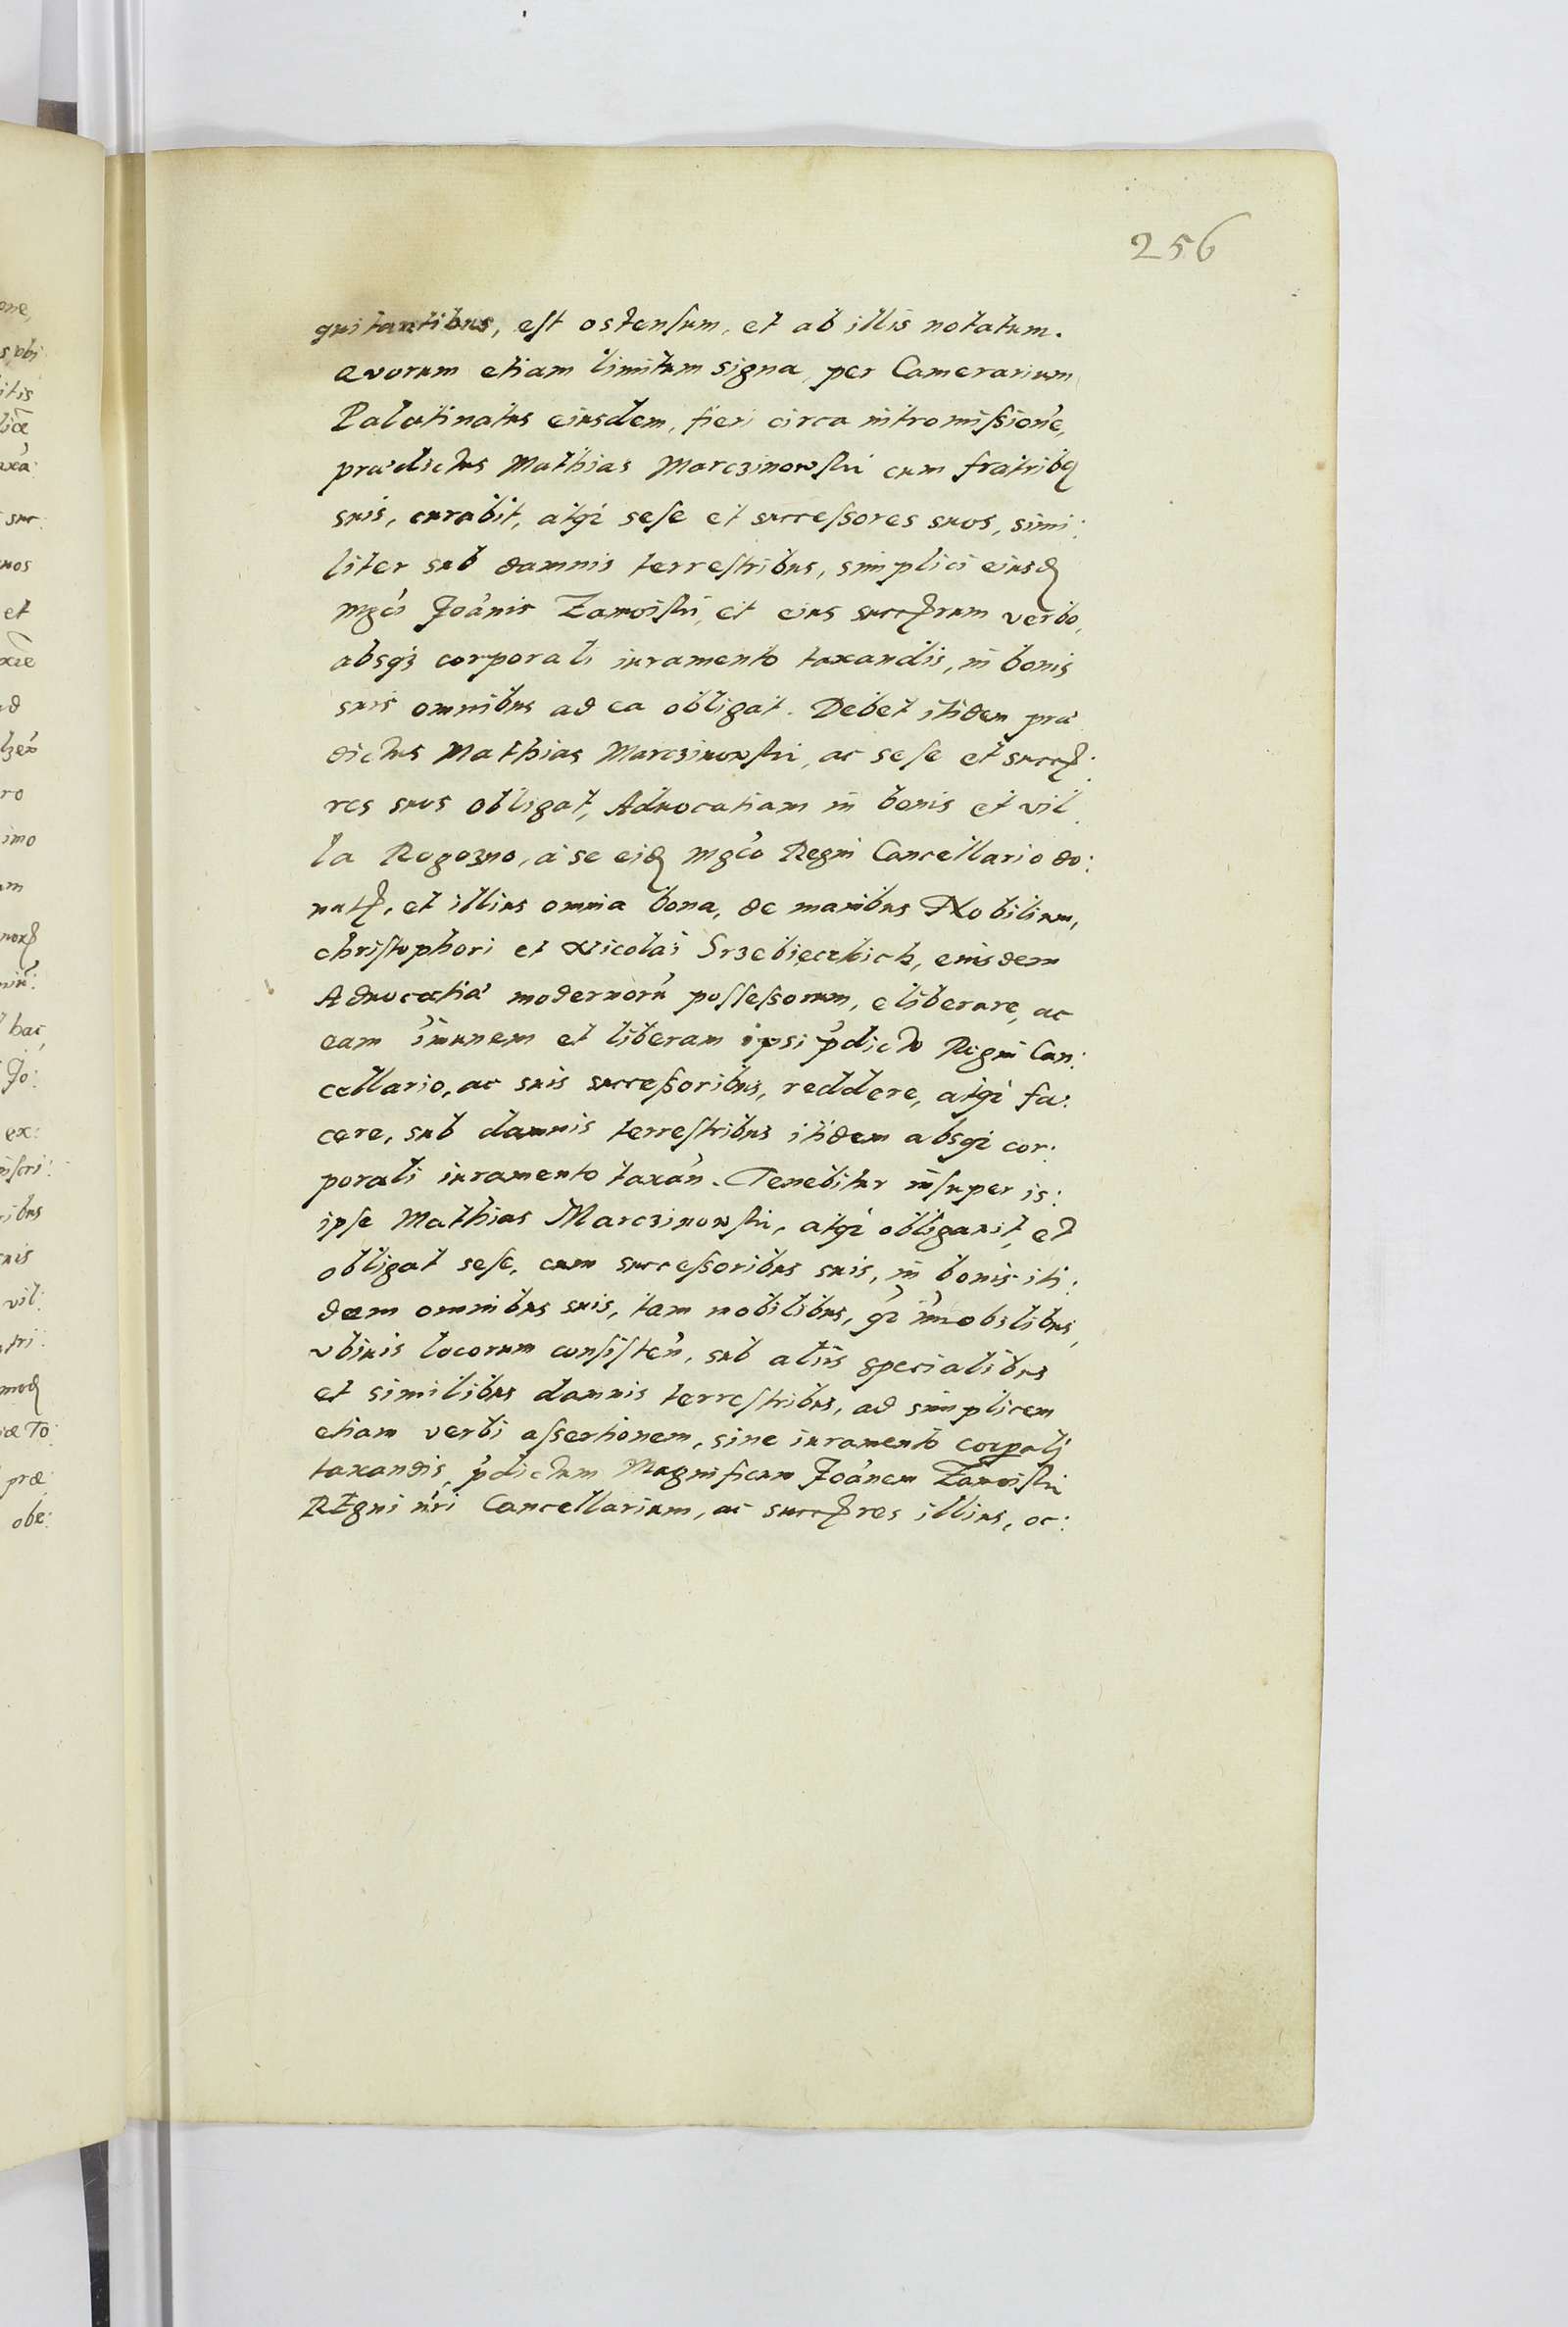 256
quitantibus, est ostensum, et ab illis notatum.
Quorum etiam limitum signa, per Camerarium
Palatinatus eiusdem, fieri circa intromissione,
prædictus Mathias Marczinowski cum fratribꝫ
suis, curabit, atqꝫ sese et successores suos, simi:
liter sub damnis terrestribus, simplici eiusd
Mgci Joãnis Zamoiski, et eius succrum verbo,
absqꝫ corporali iuramento taxandis, in bonis
suis omnibus ad ea obligat. Debet itidem præ
dictus Mathias Marczinowski, ac sese et succ:
res suos obligat, Aduocatiam in bonis et vil
la Rogozno, a se eid Mgco Regni Cancellario do:
nat, et illius omnia bona, de manibus Nobilium,
Christophori et Nicolai Srzebieckich, eiusdem
Aduocatiæ modernorũ possessorum, eliberare, ac
eam im̃unem et liberam ipsi p̃dicto Regni Can:
cellario, ac suis successoribus, reddere, atqꝫ fa:
cere, sub damnis terrestribus itidem absqꝫ cor:
porali iuramento taxañ. Tenebitur insuper is:
ipse Mathias Marczinowski, atqꝫ obligauit, et
obligat sese, cum successoribus suis, in bonis iti:
dem omnibus suis, tam mobilibus, qꝫ im̃obilibus,
vbiuis locorum consisteñ, sub aliis specialibus
et similibus damnis terrestribus, ad simplicem
etiam verbi assertionem, sine iuramento corpali
taxandis, p̃dictum Magnificum Joãnem Zamoiski
REgni nr̃i Cancellarium, ac succres illius, oc: